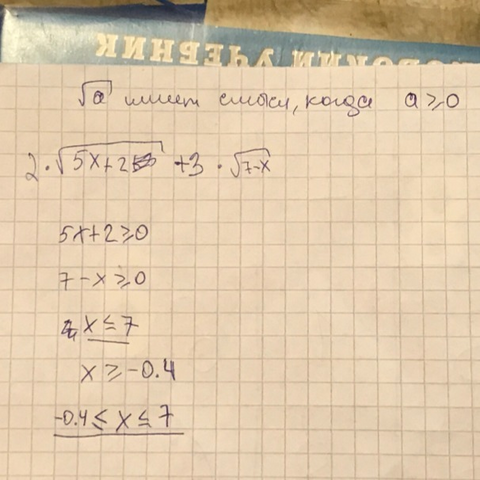 ЧЕБНИК
√a имеет смысл, когда a ≥ 0
2·√5x+2 + 3·√7-x
5x+2 ≥ 0
7-x ≥ 0
x ≤ 7
x ≥ -0.4
-0.4 ≤ x ≤ 7